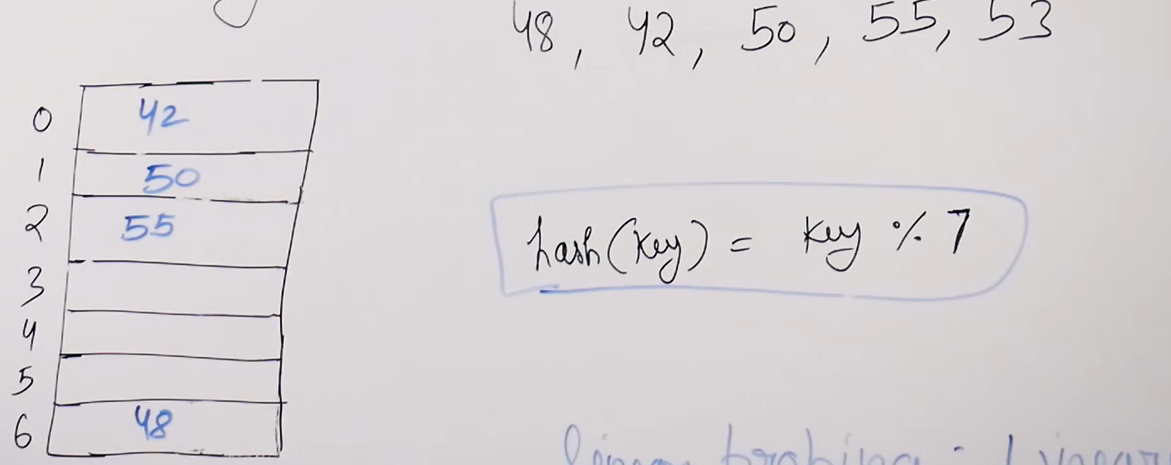 48, 42, 50, 55, 53
0 42
1 50
2 55
3
4
5
6 48
hash(key) = key % 7
linear probing : Linear